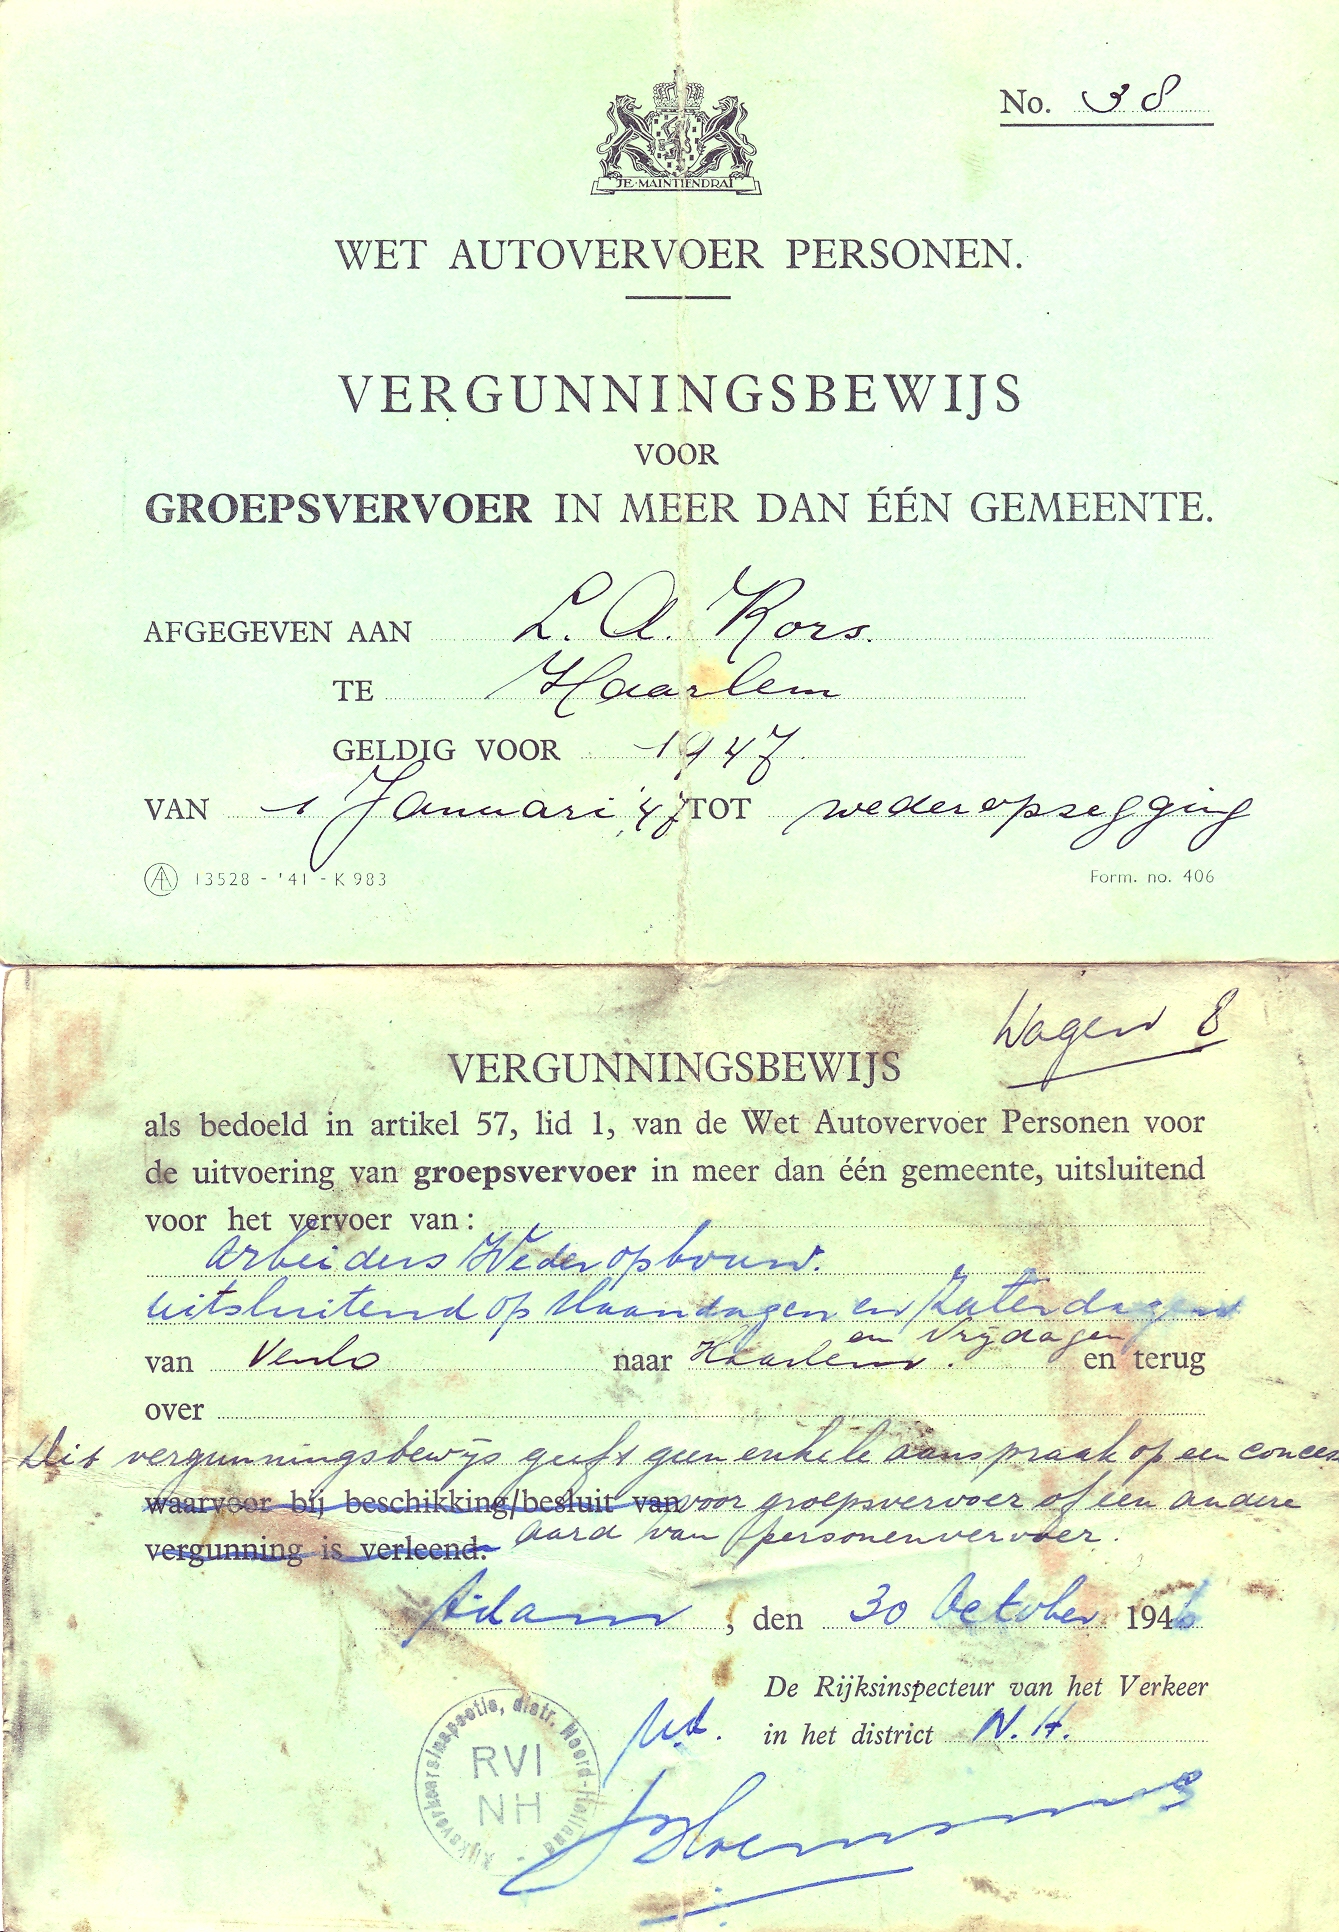 No. 38
JE·MAINTIENDRAI
WET AUTOVERVOER PERSONEN.
VERGUNNINGSBEWIJS
VOOR
GROEPSVERVOER IN MEER DAN ÉÉN GEMEENTE.
AFGEGEVEN AAN L. A. Kors.
TE Haarlem
GELDIG VOOR 1947.
VAN 1 Januari '47 TOT wederopzegging
13528 - '41 - K 983 Form. no. 406
Wagen 8
VERGUNNINGSBEWIJS
als bedoeld in artikel 57, lid 1, van de Wet Autovervoer Personen voor
de uitvoering van groepsvervoer in meer dan één gemeente, uitsluitend
voor het vervoer van:
Arbeiders Wederopbouw.
uitsluitend op Maandagen en Zaterdagen
en Vrijdagen
van Venlo naar Haarlem. en terug
over
Dit vergunningsbewijs geeft geen enkele aanspraak op een conces
waarvoor bij beschikking/besluit van voor groepsvervoer of een andere
vergunning is verleend. aard van personenvervoer.
A'dam, den 30 October 1946
De Rijksinspecteur van het Verkeer
in het district N.H.
Rijksverkeersinspectie, distr. Noord-Holland
RVI
NH